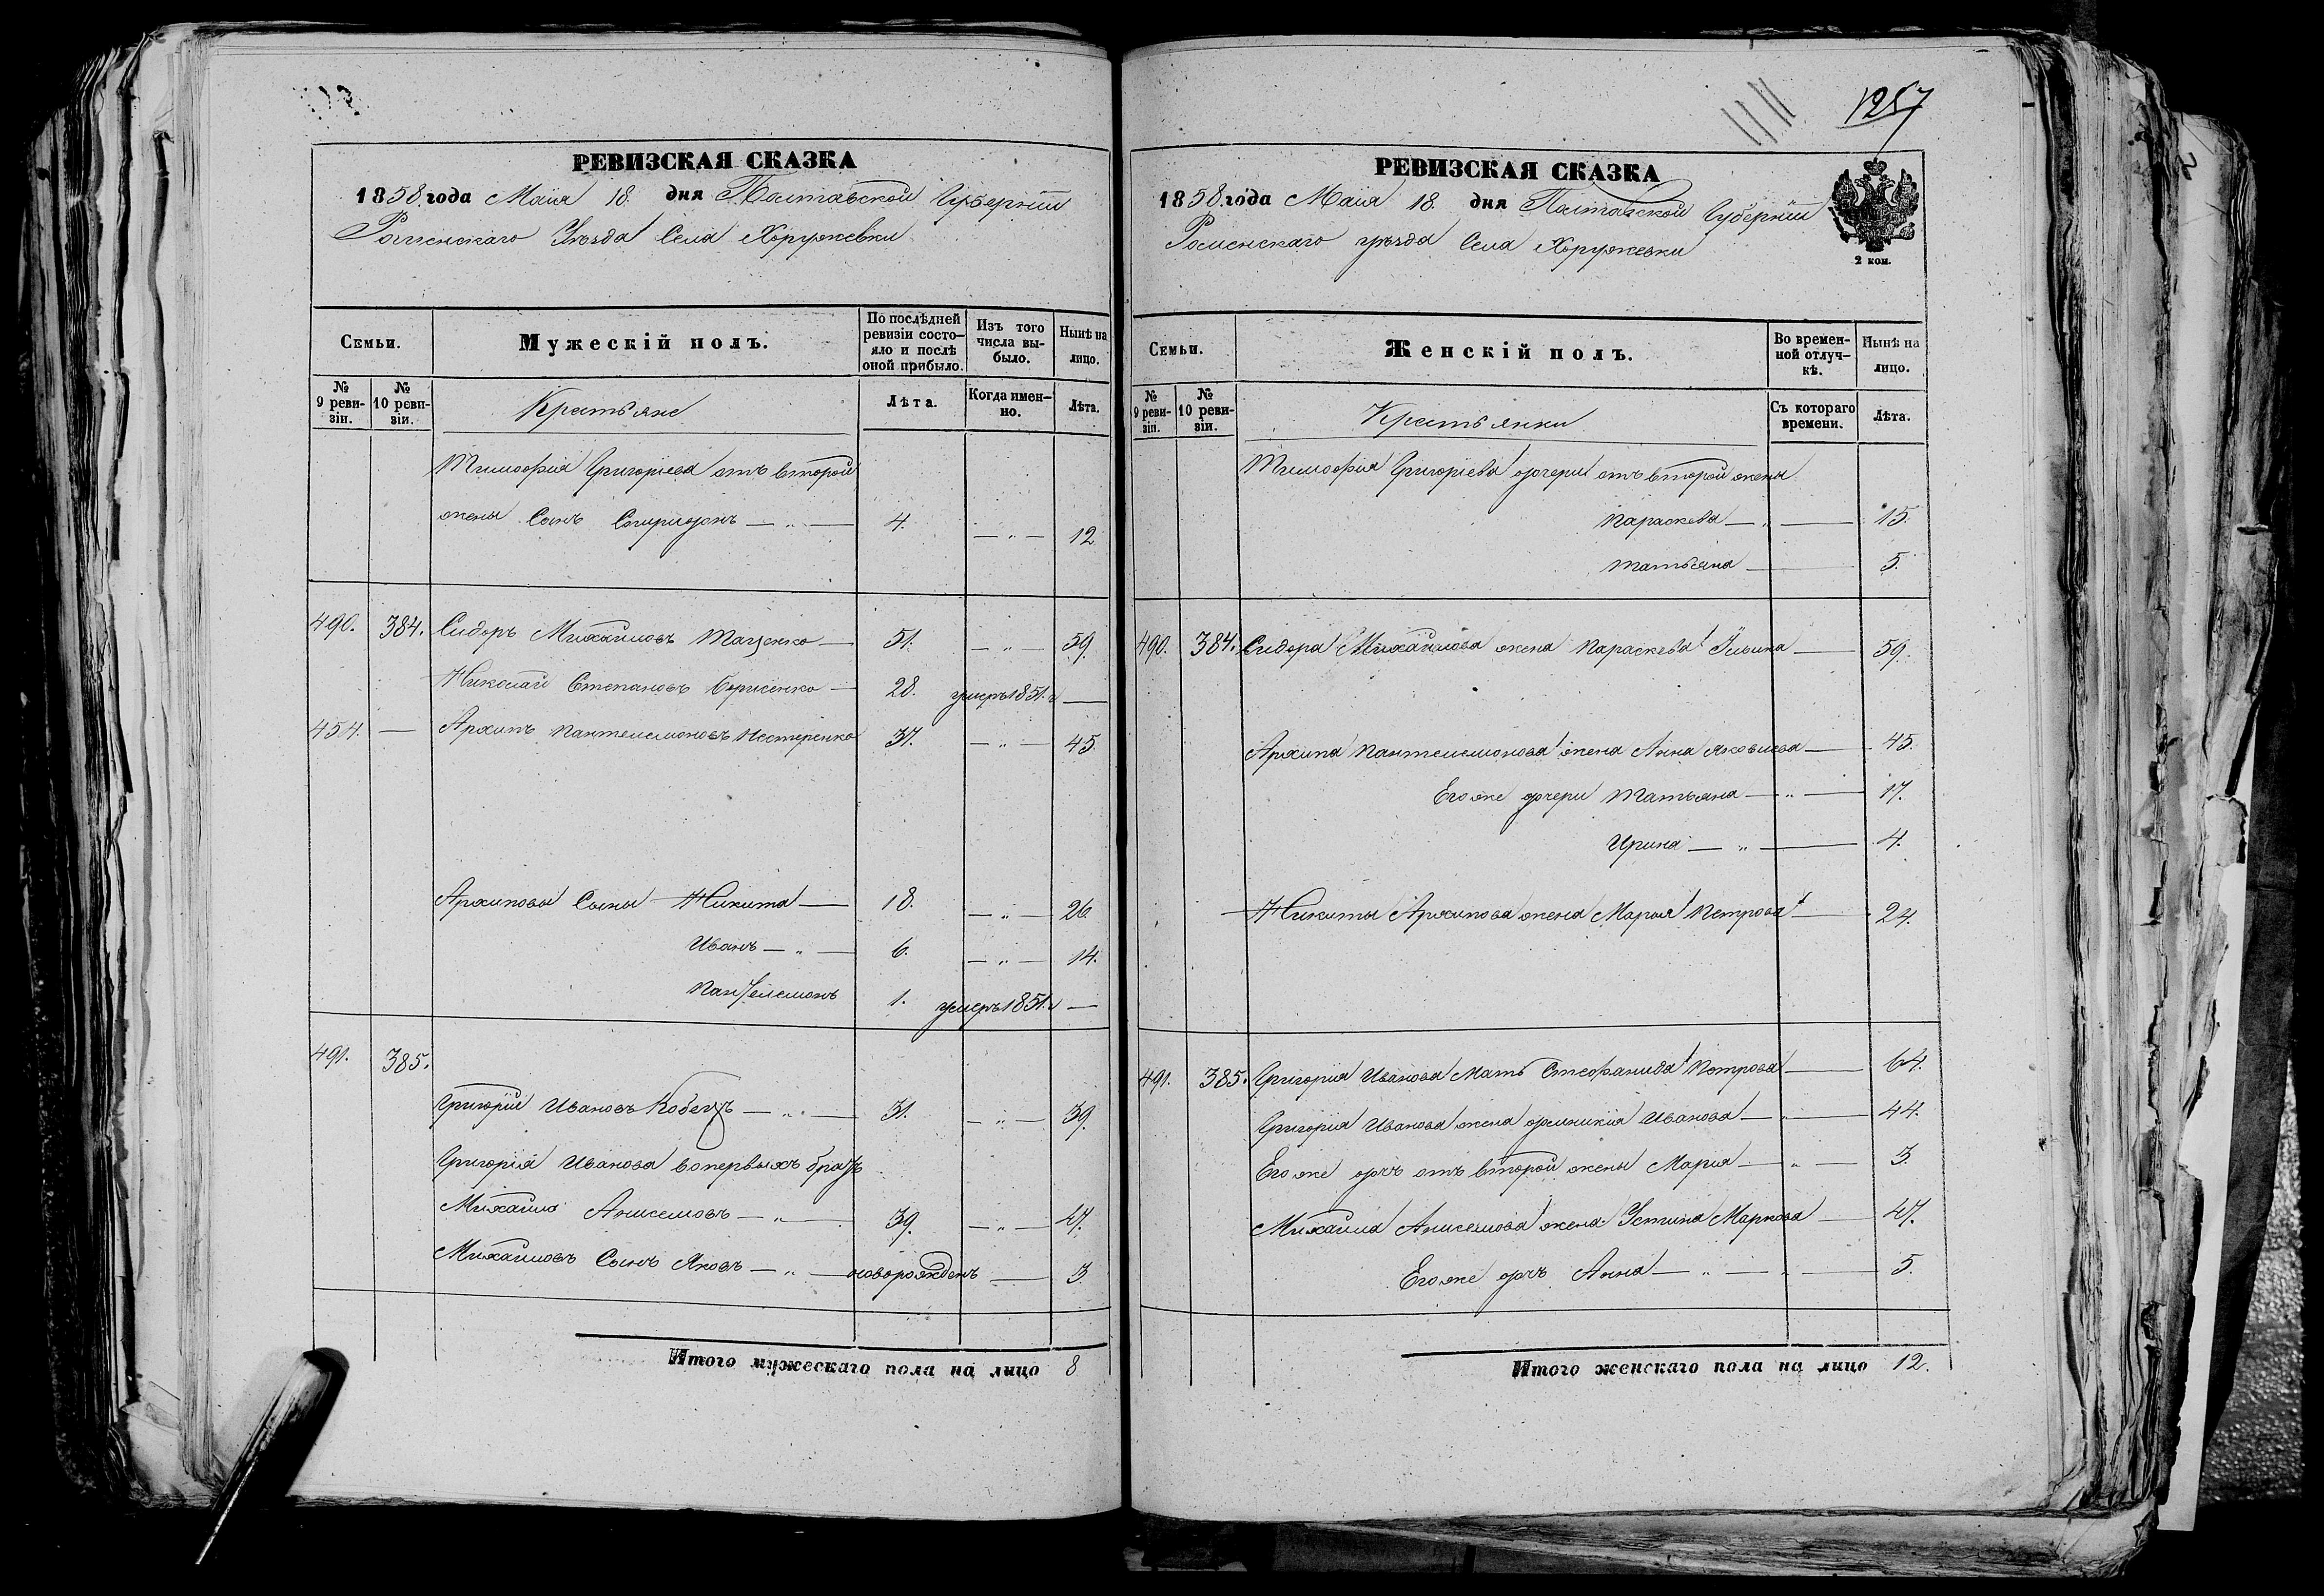 РЕВИЗСКАЯ СКАЗКА
1858 года Маия 18. дня Полтавской Губернии
Роменскаго Уѣзда Села Хоружевки
Семьи.
Мужескій полъ.
По послѣдней ревизіи состо-
яло и послѣ оной прибыло.
Изъ того числа вы-
было.
Нынѣ на лицо.
№ 9 реви-
зіи.
№ 10 реви-
зіи.
Крестьяне
Лѣта.
Когда имен-
но.
Лѣта.
Тимофія Григоріева отъ второй
жены Сынъ Спиридонъ — „ — 4. — „ — 12
490. 384. Сидоръ Михайловъ Таценко — 51. — „ — 59.
Николай Степановъ Борисенко — 28. умеръ 1851. г —
454. — Архипъ Пантелемоновъ Нестеренко 37. — „ — 45.
Архиповы Сыны Никита — 18. — „ — 26.
Иванъ — „ — 6. — „ — 14.
Пантелемонъ 1. умеръ 1851. г —
491. 385.
Григорій Ивановъ Кобецъ — „ — 31. — „ — 39.
Григорія Иванова вопервыхъ братъ
Михайло Анисемовъ — „ — 39. — „ — 47.
Михайловъ Сынъ Яковъ — „ — новорожденъ — 3.
Итого мужескаго пола на лицо 8
1257
РЕВИЗСКАЯ СКАЗКА
1858 года Маия 18. дня Полтавской Губерніи
Роменскаго уѣзда Села Хоружевки
2 коп.
Семьи.
Женскій полъ.
Во времен-
ной отлуч-
кѣ.
Нынѣ на лицо.
№ 9 реви-
зіи.
№ 10 реви-
зіи.
Крестьянки
Съ котораго времени.
Лѣта.
Тимофія Григоріева дочери отъ второй жены
Параскева — „ — 15.
Татьяна — 5.
490. 384. Сидора Михайлова жена Параскева Ильина — 59.
Архипа Пантелемонова жена Анна Яковлева — 45.
Его же дочери Татьяна — „ — 17.
Ирина — „ — 4.
Никиты Архипова жена Марья Петрова — 24.
491. 385. Григорія Иванова Мать Стефанида Петрова — 64.
Григорія Иванова жена Домникія Иванова — „ — 44.
Его же дочь отъ второй жены Марія — „ — 3.
Михайла Анисемова жена Устина Маркова — 47.
Его же дочь Анна — „ — „ — 5.
Итого женскаго пола на лицо 12.